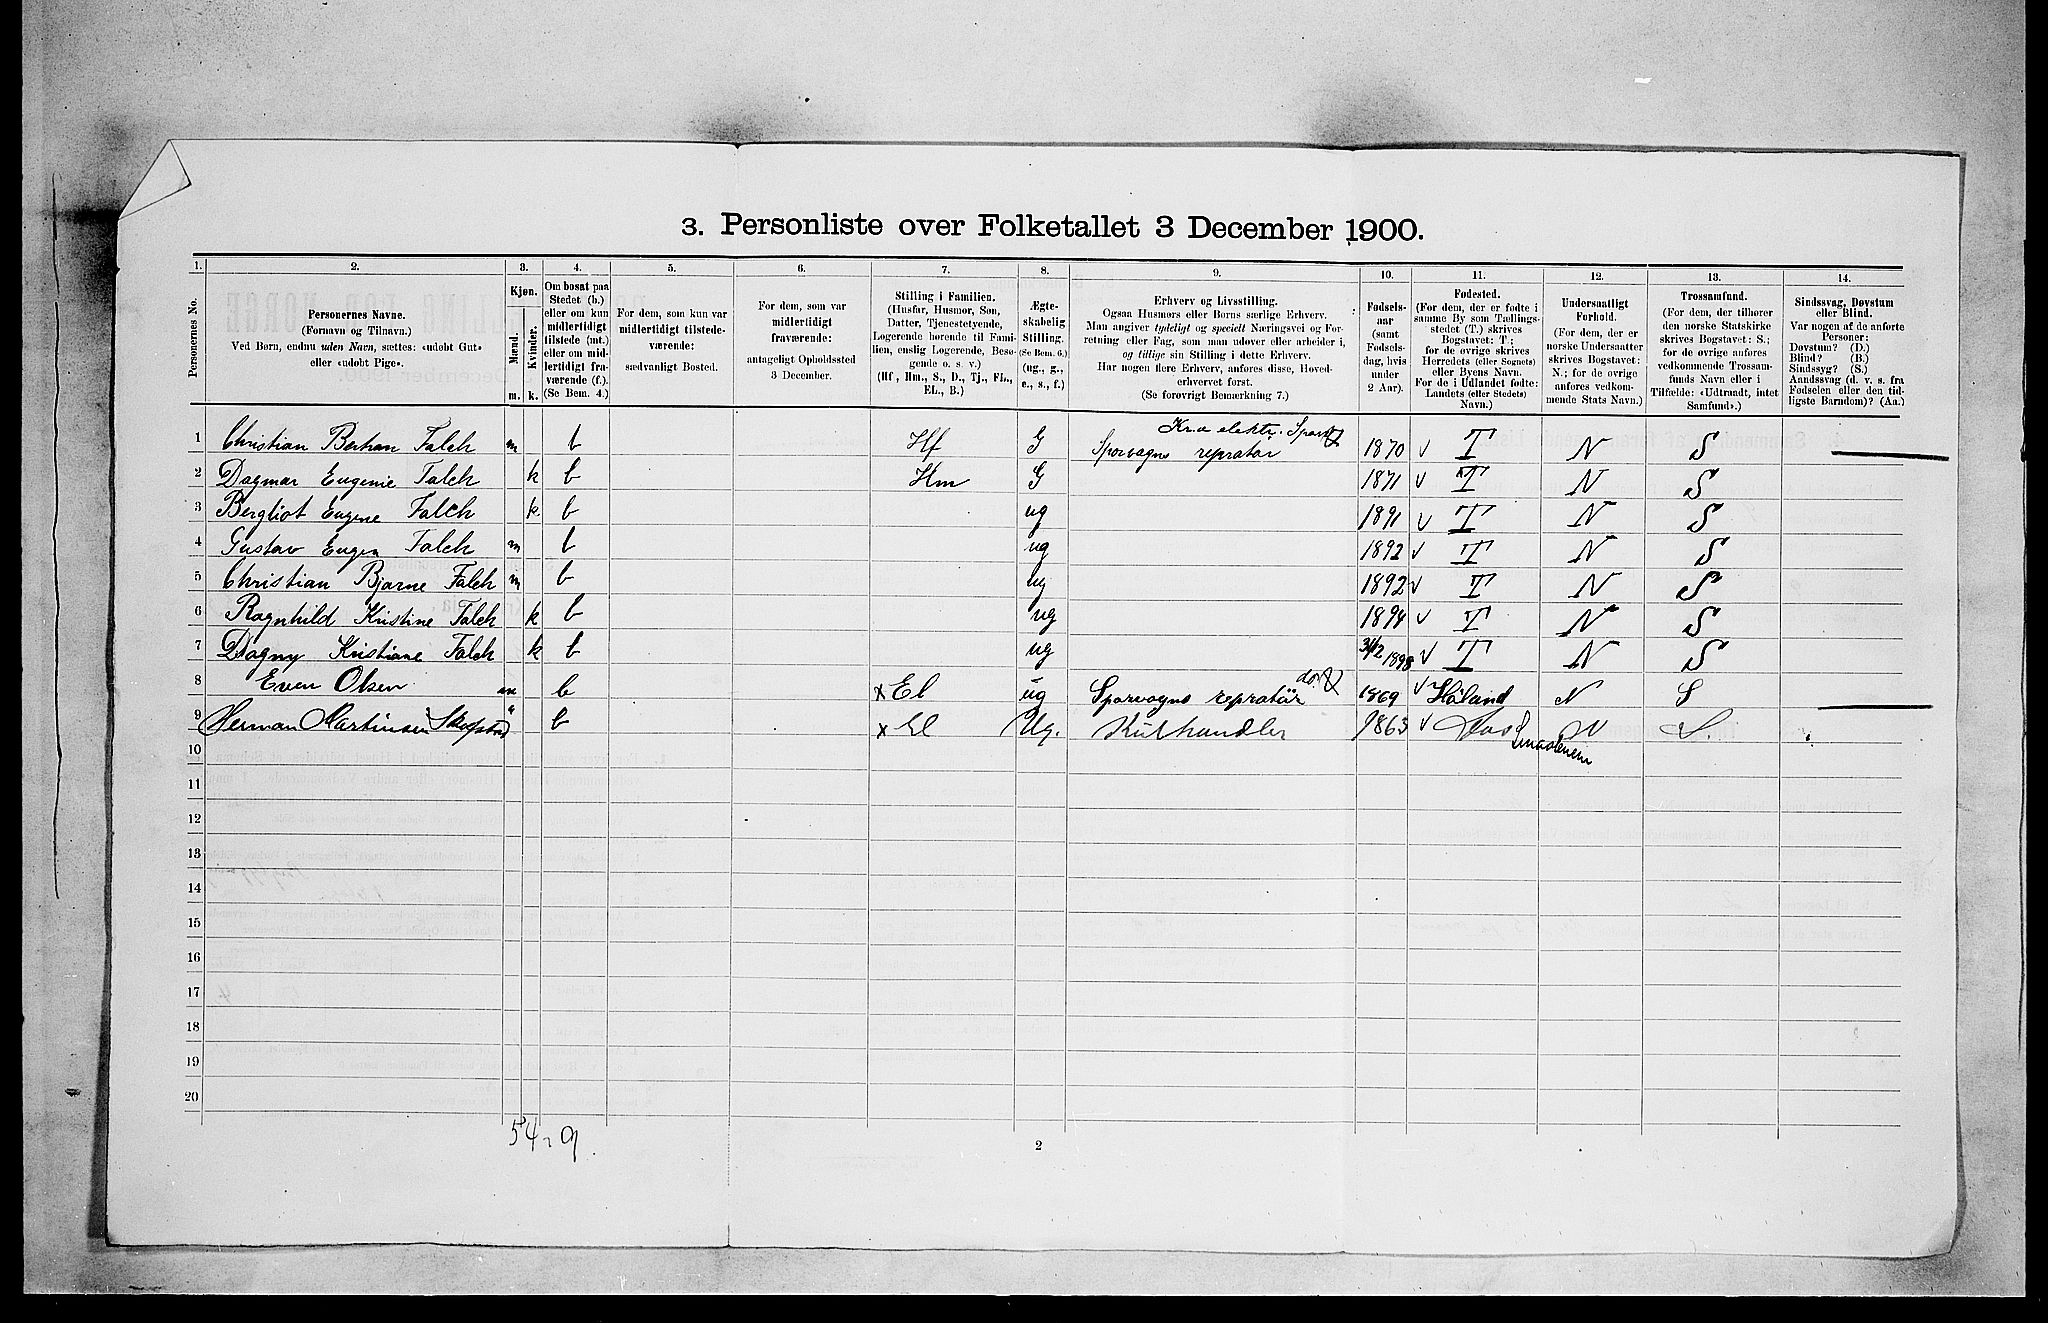 3. Personliste over Folketallet 3 December 1900.
1. 2. 3. 4. 5. 6. 7. 8. 9. 10. 11. 12. 13. 14.
Personernes No.
Personernes Navne.
(Fornavn og Tilnavn.)
Ved Børn, endnu uden Navn, sættes: «udøbt Gut»
eller «udøbt Pige».
Kjøn.
Mænd. Kvinder.
m. k.
Om bosat paa
Stedet (b.)
eller om kun
midlertidigt
tilstede (mt.)
eller om mid-
lertidigt fra-
værende (f.).
(Se Bem. 4.)
For dem, som kun var
midlertidigt tilstede-
værende:
sædvanligt Bosted.
For dem, som var
midlertidigt
fraværende:
antageligt Opholdssted
3 December.
Stilling i Familien.
(Husfar, Husmor, Søn,
Datter, Tjenestetyende,
Logerende hørende til Fami-
lien, enslig Logerende, Besø-
gende o. s. v.)
(Hf, Hm., S., D., Tj., FL.,
EL., B.)
Ægte-
skabelig
Stilling.
(Se Bem. 6.)
(ug., g.,
e., s., f.)
Erhverv og Livsstilling.
Ogsaa Husmors eller Børns særlige Erhverv.
Man angiver tydeligt og specielt Næringsvei og For-
retning eller Fag, som man udøver eller arbeider i,
og tillige sin Stilling i dette Erhverv.
Har nogen flere Erhverv, anføres disse, Hoved-
erhvervet først.
(Se forøvrigt Bemærkning 7.)
Fødsels-
aar
(samt
Fødsels-
dag, hvis
under
2 Aar).
Fødested.
(For dem, der er fødte i
samme By som Tællings-
stedet (T.) skrives
Bogstavet: T;
for de øvrige skrives
Herredets (eller Sognets)
eller Byens Navn.
For de i Udlandet fødte:
Landets (eller Stedets)
Navn.)
Undersaatligt
Forhold.
(For dem, der er
norske Undersaatter
skrives Bogstavet:
N.; for de øvrige
anføres vedkom-
mende Stats Navn.)
Trossamfund.
(For dem, der tilhører
den norske Statskirke
skrives Bogstavet: S.;
for de øvrige anføres
vedkommende Trossam-
funds Navn eller i
Tilfælde: «Udtraadt, intet
Samfund».)
Sindssvag, Døvstum
eller Blind.
Var nogen af de anførte
Personer:
Døvstum? (D.)
Blind? (B.)
Sindssyg? (S.)
Aandssvag (d. v. s. fra
Fødselen eller den tid-
ligste Barndom)? (Aa.)
Kr.a elektr. Sporv.
1 Christian Falch m b Hf G Sporvogns repratør 1870 v T N S
2 Dagmar Eugenie Falch k b Hm G 1871 v T N S
3 Bergliot Eugene Falch k. b ug 1891 v T N S
4 Gustav Eugen Falch m b ug 1892 v T N S
5 Christian Bjarne Falch m b ug 1892 v T N S
6 Ragnhild Kristine Falch k b ug 1894 v T N S
7 Dagny Kristiane Falch k b ug 31/12 1898 v T N S
8 Even Olsen m b x El ug Sporvogns repratør do. 1869 v Høland N S
9 Herman Martinsen b x El Ug. Kulhandler 1863 v Smaalenene N S.
10
11
12
13
14
15
16
17
18
19
20
54 9.
2